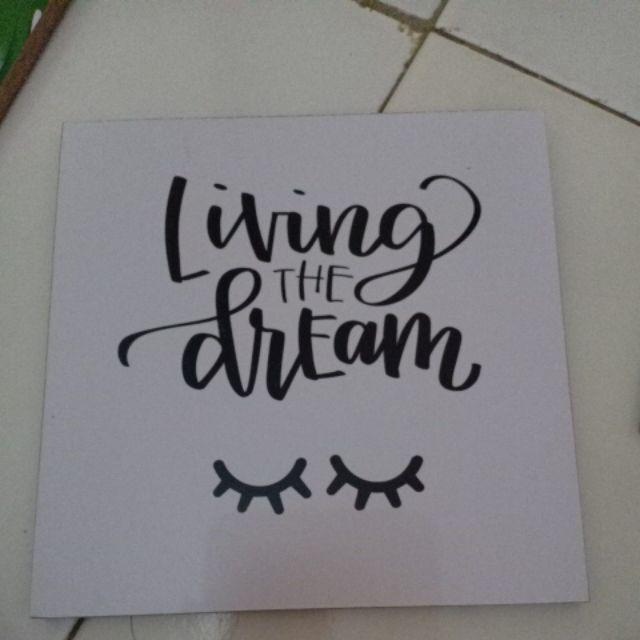 Living
THE
drEam